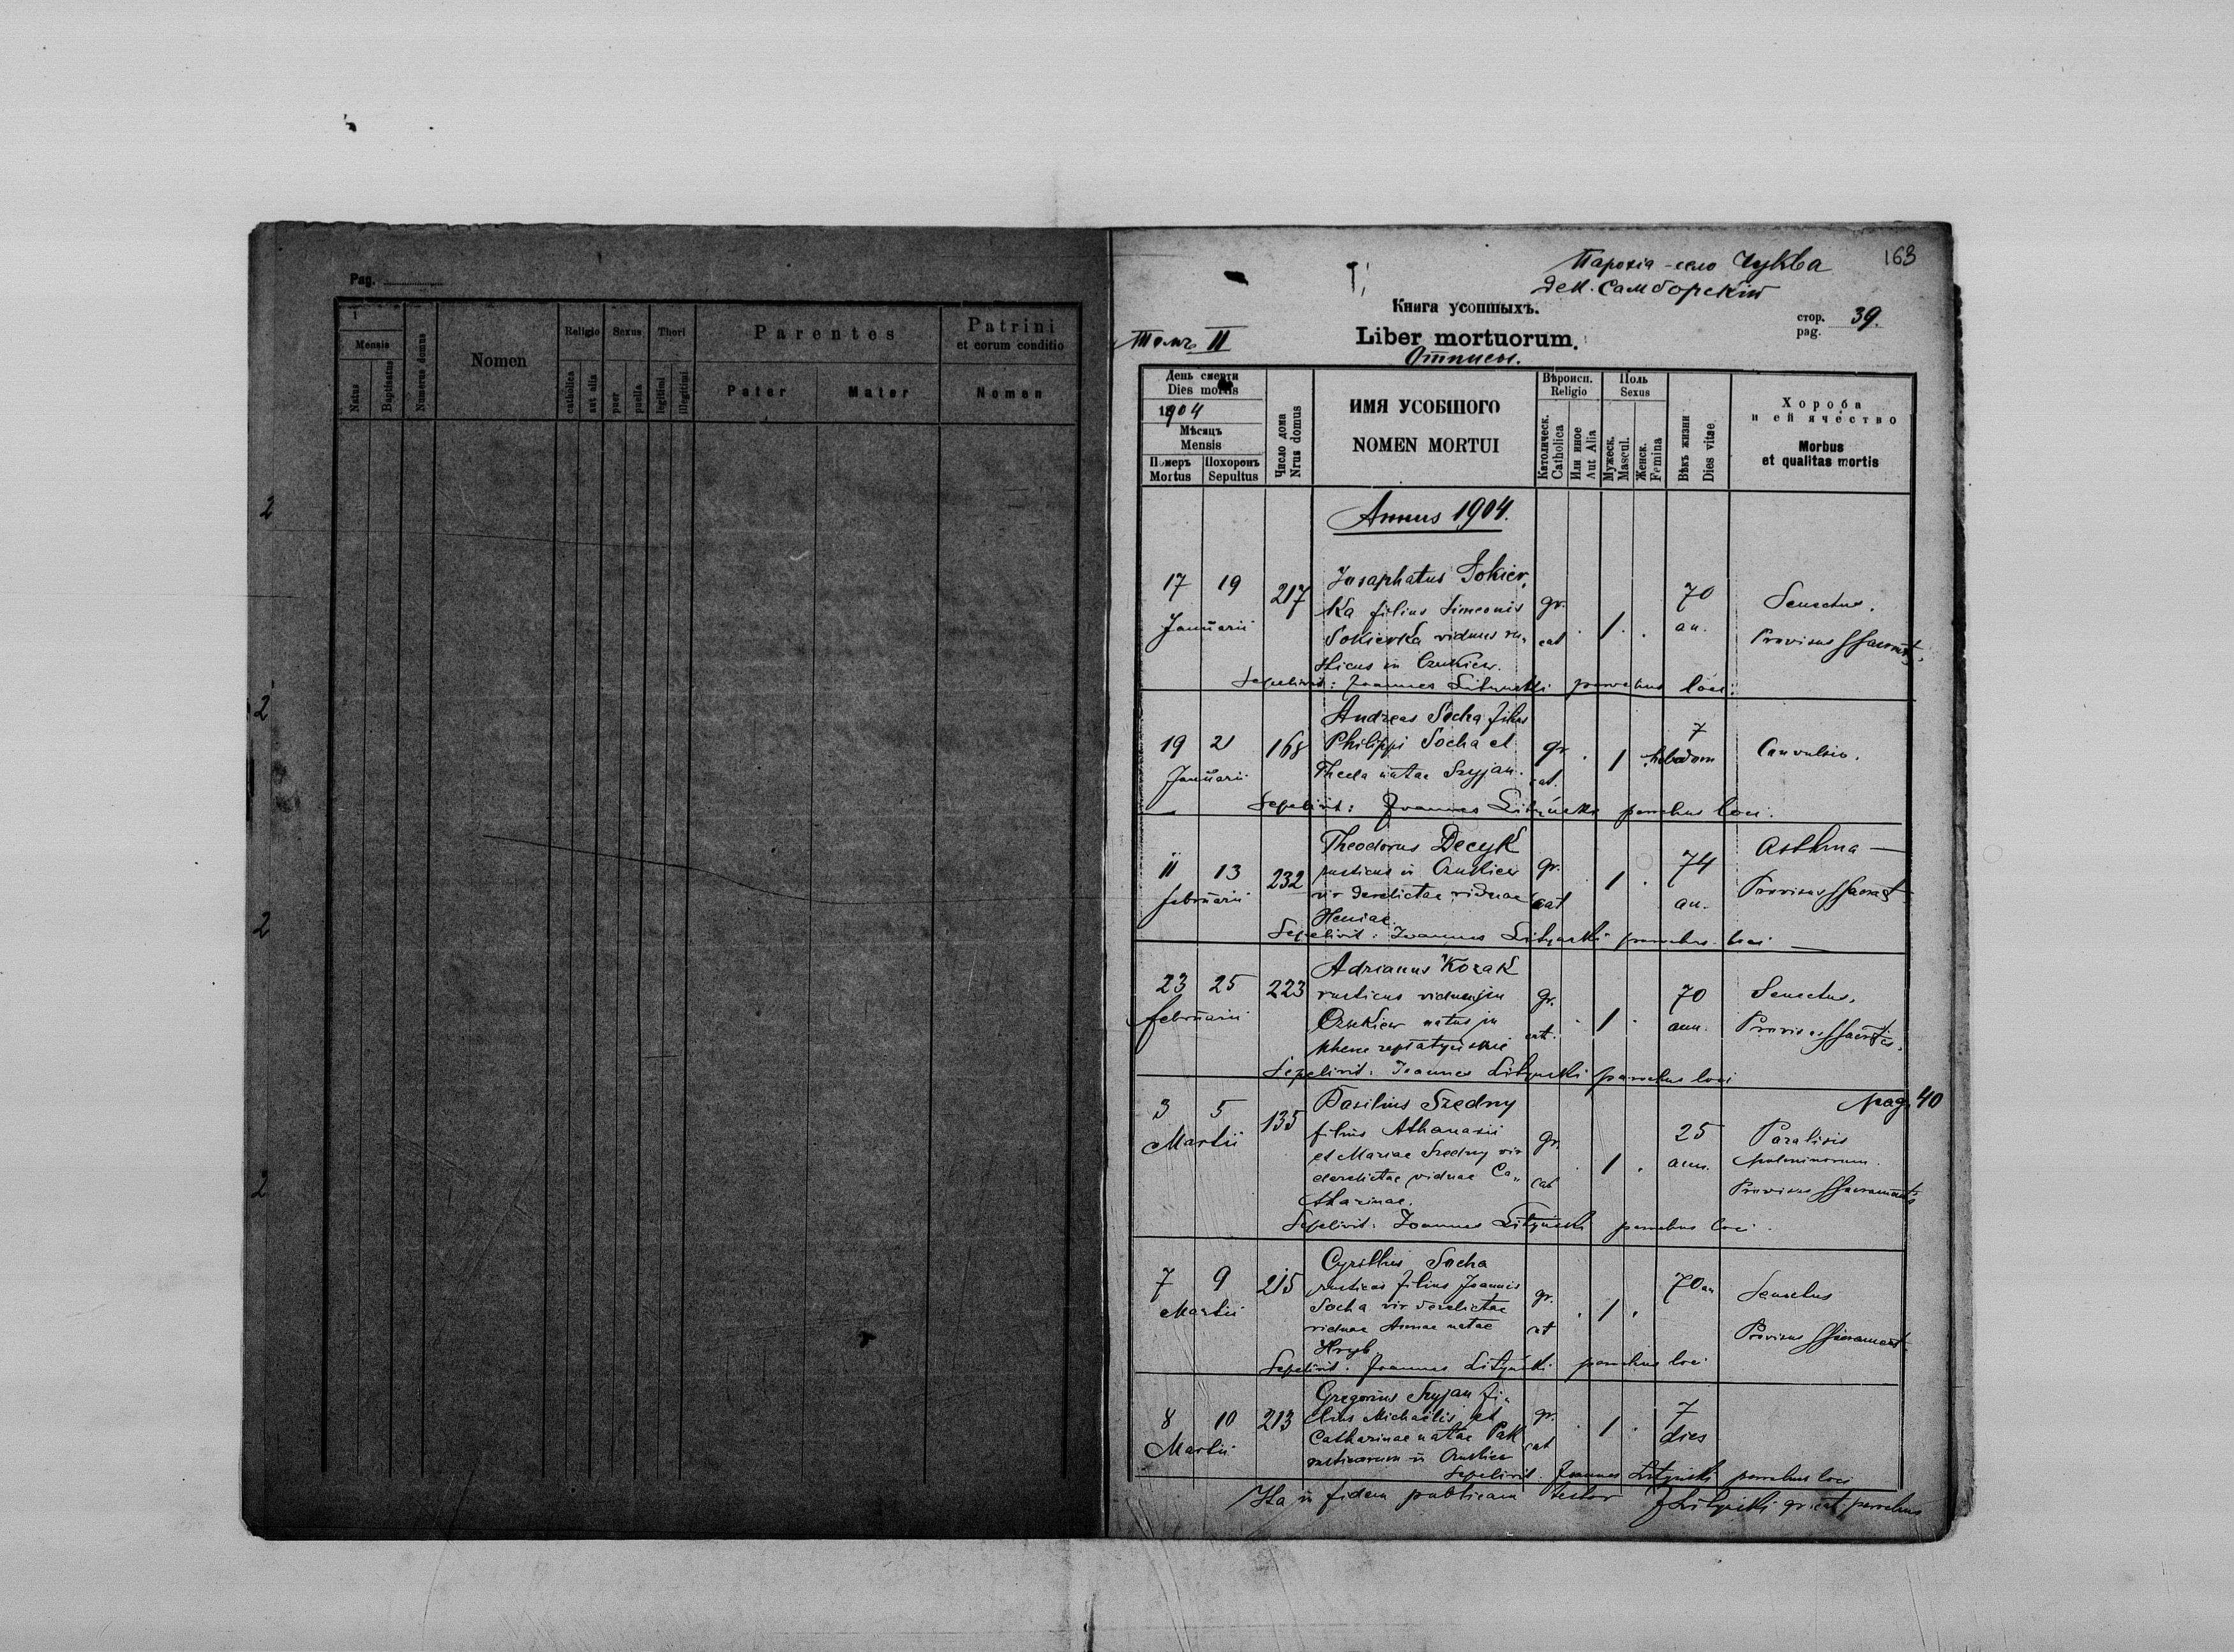 Pag.
1
Mensis
Natus
Baptisatus
Numerus domus
Nomen
Religio
catholica
aut alia
Sexus
puer
puella
Thori
legitimi
illegitimi
Parentes
Pater
Mater
Patrini
et eorum conditio
Nomen
2
2
2
2
163
Парохіа - село Чуква
дек. Самборскій
Книга усопшыхъ.
стор.
pag. 39.
Томъ II
Liber mortuorum.
Отписъ.
День смерти
Dies mortis
1904
Мѣсяцъ
Mensis
Померъ
Mortus
Похоронъ
Sepultus
Число дома
Nrus domus
ИМЯ УСОБШОГО
NOMEN MORTUI
Вѣроисп.
Religio
Католическ.
Catholica
Или иное
Aut Alia
Поль
Sexus
Мужеск.
Mascul.
Женск.
Femina
Вѣкъ жизни
Dies vitae
Хороба
и ей ячество
Morbus
et qualitas mortis
Annus 1904.
17 19 217 Josaphatus Sokier,
ka filius Simeonis gr. 70 Senectus.
Januarii Sokierka viduus ru„ cat 1 an. Provisus SSacrmts
sticus in Czukiew.
Sepelivit: Joannes Lityński parochus loci.
Andreas Socha filius
19 21 168 Philippi Socha et gr. 1 7 hebdom Convulsio.
Januarii Thecla natae Szyjan. cat.
Sepelivit: Joannes Lityński parochus loci.
Theodorus Decyk Asthma —
11 13 232 rusticus in Czukiew gr. 1 74
februarii vir derelictae viduae cat an. Provisus SSacrat
Heniae.
Sepelivit: Joannes Lityński parochus loci —
Adrianus Kozak
23 25 223 rusticus viduus in gr. 70 Senectus.
februarii Czukiew natus in cat. 1 ann. Provisus SSacrtis.
Sepelivit: Joannes Lityński parochus loci
pag. 40
3 5 135 Basilius Szedny
Martii filius Athanasii gr. 25 Paralisis
et Mariae Szedny vir 1 ann. pulminorum.
derelictae viduae Ca„ cat Provisus SSacramentis
tharinae.
Sepelivit: Joannes Lityński parochus loci.
Cyrillus Socha
7 9 215 rusticus filius Joannis gr. 70 an Senectus
Martii Socha vir derelictae 1
viduae Annae natae cat Provisus SSacrament
Hryb
Sepelivit: Joannes Lityński parochus loci
Gregorius Szyjan fi„
8 10 213 lius Michaëlis et gr. 1 7
Martii Catharinae natae Pak cat dies
rusticorum in Czukiew
Sepelivit. Joannes Lityński parochus loci
Ita in fidem publicam testor J Lityński gr. cat. parochus